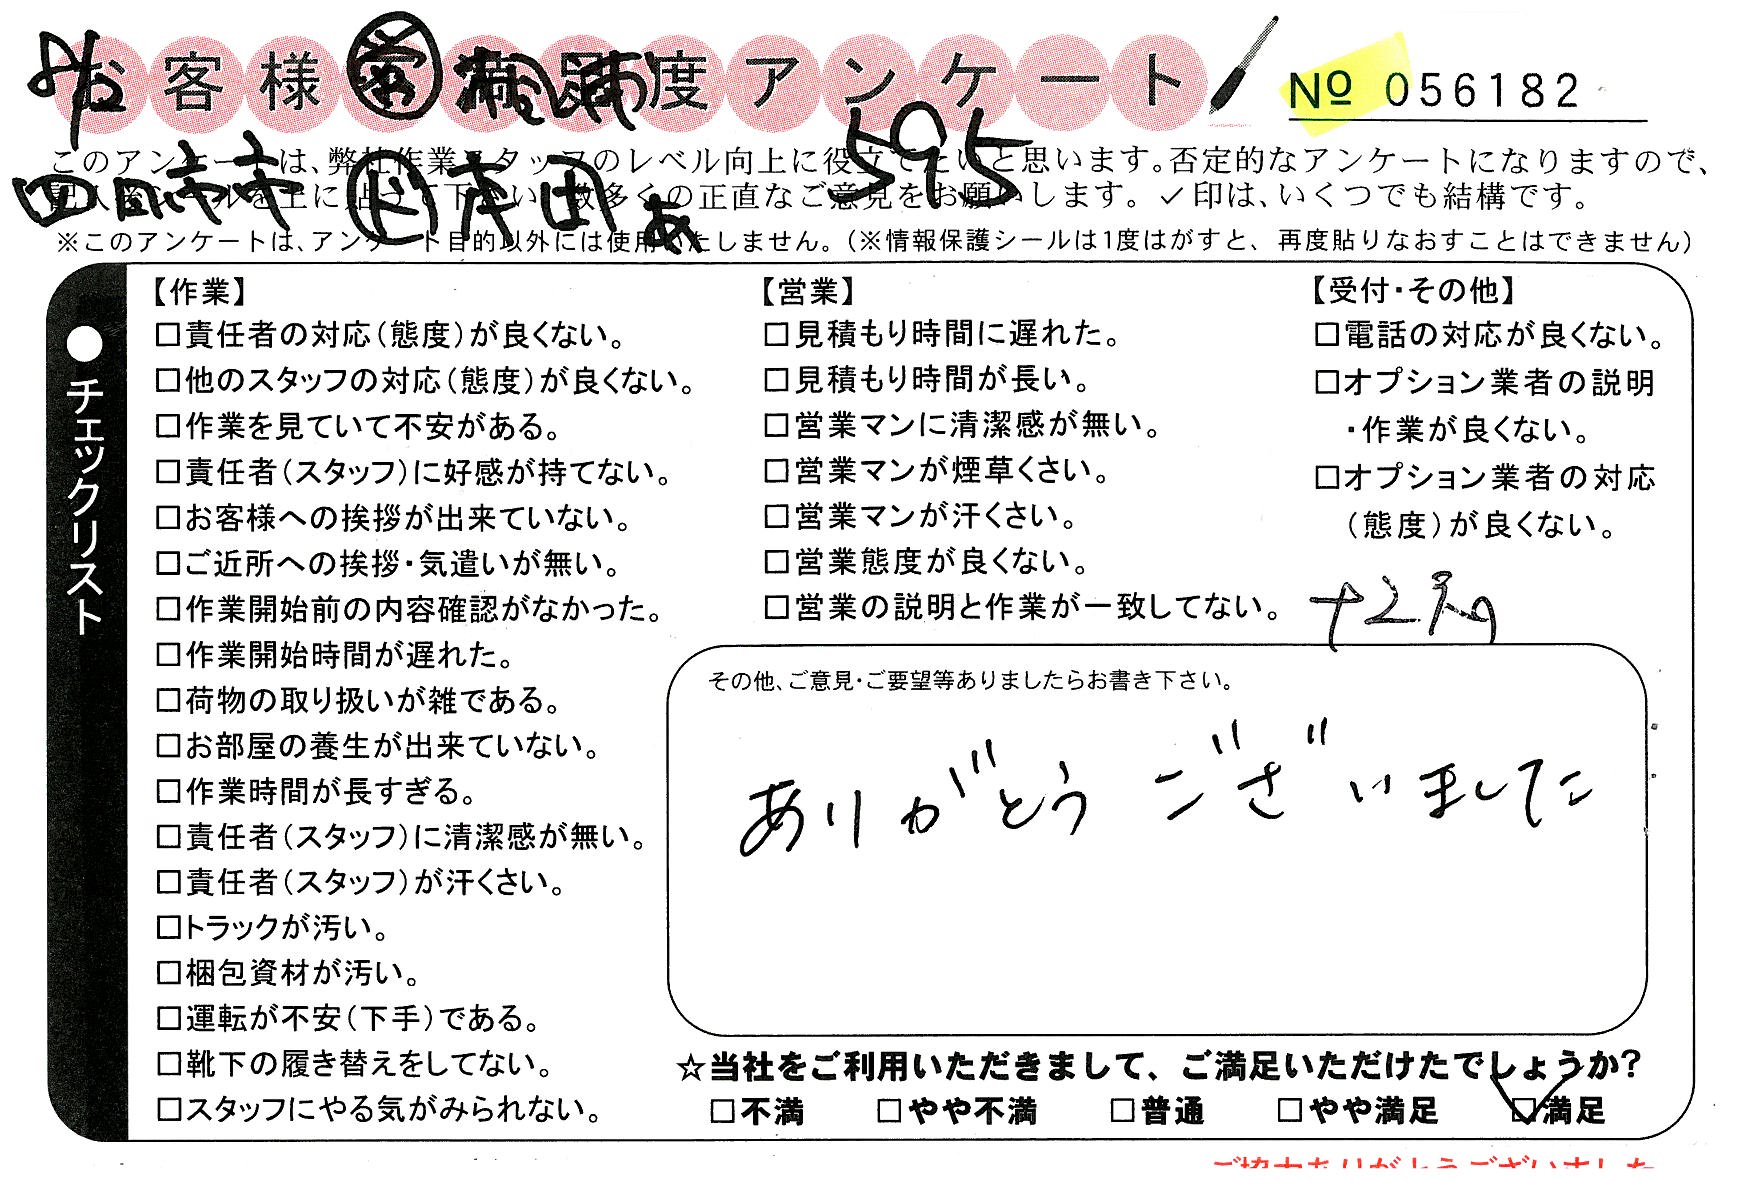 お客様満足度アンケート
№ 056182
595
このアンケートは、弊社作業スタッフのレベル向上に役立てたいと思います。否定的なアンケートになりますので、
記入後シールを上に貼って下さい。数多くの正直なご意見をお願いします。✓印は、いくつでも結構です。
四日市市
※このアンケートは、アンケート目的以外には使用いたしません。(※情報保護シールは1度はがすと、再度貼りなおすことはできません)
●チェックリスト
【作業】
□責任者の対応(態度)が良くない。
□他のスタッフの対応(態度)が良くない。
□作業を見ていて不安がある。
□責任者(スタッフ)に好感が持てない。
□お客様への挨拶が出来ていない。
□ご近所への挨拶・気遣いが無い。
□作業開始前の内容確認がなかった。
□作業開始時間が遅れた。
□荷物の取り扱いが雑である。
□お部屋の養生が出来ていない。
□作業時間が長すぎる。
□責任者(スタッフ)に清潔感が無い。
□責任者(スタッフ)が汗くさい。
□トラックが汚い。
□梱包資材が汚い。
□運転が不安(下手)である。
□靴下の履き替えをしてない。
□スタッフにやる気がみられない。
【営業】
□見積もり時間に遅れた。
□見積もり時間が長い。
□営業マンに清潔感が無い。
□営業マンが煙草くさい。
□営業マンが汗くさい。
□営業態度が良くない。
□営業の説明と作業が一致してない。
【受付・その他】
□電話の対応が良くない。
□オプション業者の説明
・作業が良くない。
□オプション業者の対応
(態度)が良くない。
その他、ご意見・ご要望等ありましたらお書き下さい。
ありがとうございました
☆当社をご利用いただきまして、ご満足いただけたでしょうか?
□不満 □やや不満 □普通 □やや満足 ☑満足
ご協力ありがとうございました